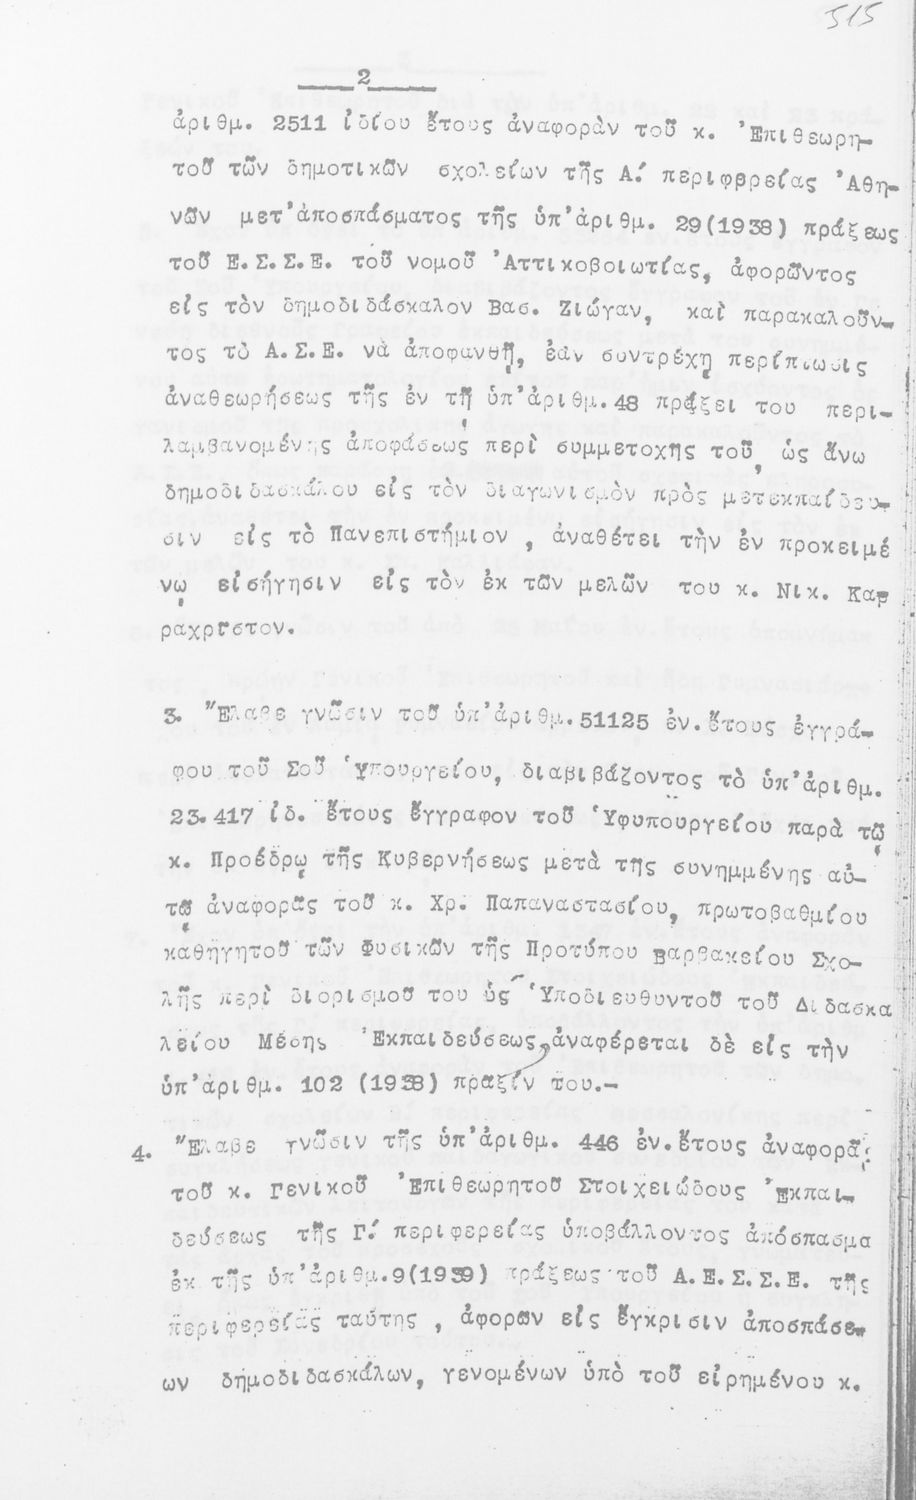 515
2
ἀριθμ. 2511 ἰδίου ἔτους ἀναφορὰν τοῦ κ. Ἐπιθεωρη-
τοῦ τῶν δημοτικῶν σχολείων τῆς Α΄ περιφερείας Ἀθη-
νῶν μετ'ἀποσπάσματος τῆς ὑπ'ἀριθμ. 29(1938) πράξεως
τοῦ Ε.Σ.Σ.Ε. τοῦ νομοῦ Ἀττικοβοιωτίας, ἀφορῶντος
εἰς τὸν δημοδιδάσκαλον Βασ. Ζιώγαν, καὶ παρακαλοῦν-
τος τὸ Α.Σ.Ε. νὰ ἀποφανθῇ, ἐὰν συντρέχῃ περίπτωσις
ἀναθεωρήσεως τῆς ἐν τῇ ὑπ'ἀριθμ.48 πράξει του περι-
λαμβανομένης ἀποφάσεως περὶ συμμετοχῆς τοῦ ὡς ἄνω
δημοδιδασκάλου εἰς τὸν διαγωνισμὸν πρὸς μετεκπαίδευ-
σιν εἰς τὸ Πανεπιστήμιον, ἀναθέτει τὴν ἐν προκειμέ
νῳ εἰσήγησιν εἰς τὸν ἐκ τῶν μελῶν του κ. Νικ. Καρ
ράχριστον.
3. Ἔλαβε γνῶσιν τοῦ ὑπ'ἀριθμ.51125 ἐν.ἔτους ἐγγρά-
φου τοῦ Σοῦ Ὑπουργείου, διαβιβάζοντος τὸ ὑπ'ἀριθμ.
23.417 ἰδ. ἔτους ἔγγραφον τοῦ Ὑφυπουργείου παρὰ τῷ
κ. Προέδρῳ τῆς Κυβερνήσεως μετὰ τῆς συνημμένης αὐ-
τῷ ἀναφορᾶς τοῦ κ. Χρ. Παπαναστασίου, πρωτοβαθμίου
καθηγητοῦ τῶν Φυσικῶν τῆς Προτύπου Βαρβακείου Σχο-
λῆς περὶ διορισμοῦ του ὡς Ὑποδιευθυντοῦ τοῦ Διδασκα
λείου Μέσης Ἐκπαιδεύσεως, ἀναφέρεται δὲ εἰς τὴν
ὑπ'ἀριθμ. 102 (1938) πρᾶξίν του.-
4. Ἔλαβε γνῶσιν τῆς ὑπ'ἀριθμ. 446 ἐν.ἔτους ἀναφορᾶς
τοῦ κ. Γενικοῦ Ἐπιθεωρητοῦ Στοιχειώδους Ἐκπαι-
δεύσεως τῆς Γ΄ περιφερείας ὑποβάλλοντος ἀπόσπασμα
ἐκ τῆς ὑπ'ἀριθμ.9(1939) πράξεως τοῦ Α.Ε.Σ.Σ.Ε. τῆς
περιφερείας ταύτης, ἀφορῶν εἰς ἔγκρισιν ἀποσπάσε-
ων δημοδιδασκάλων, γενομένων ὑπὸ τοῦ εἰρημένου κ.